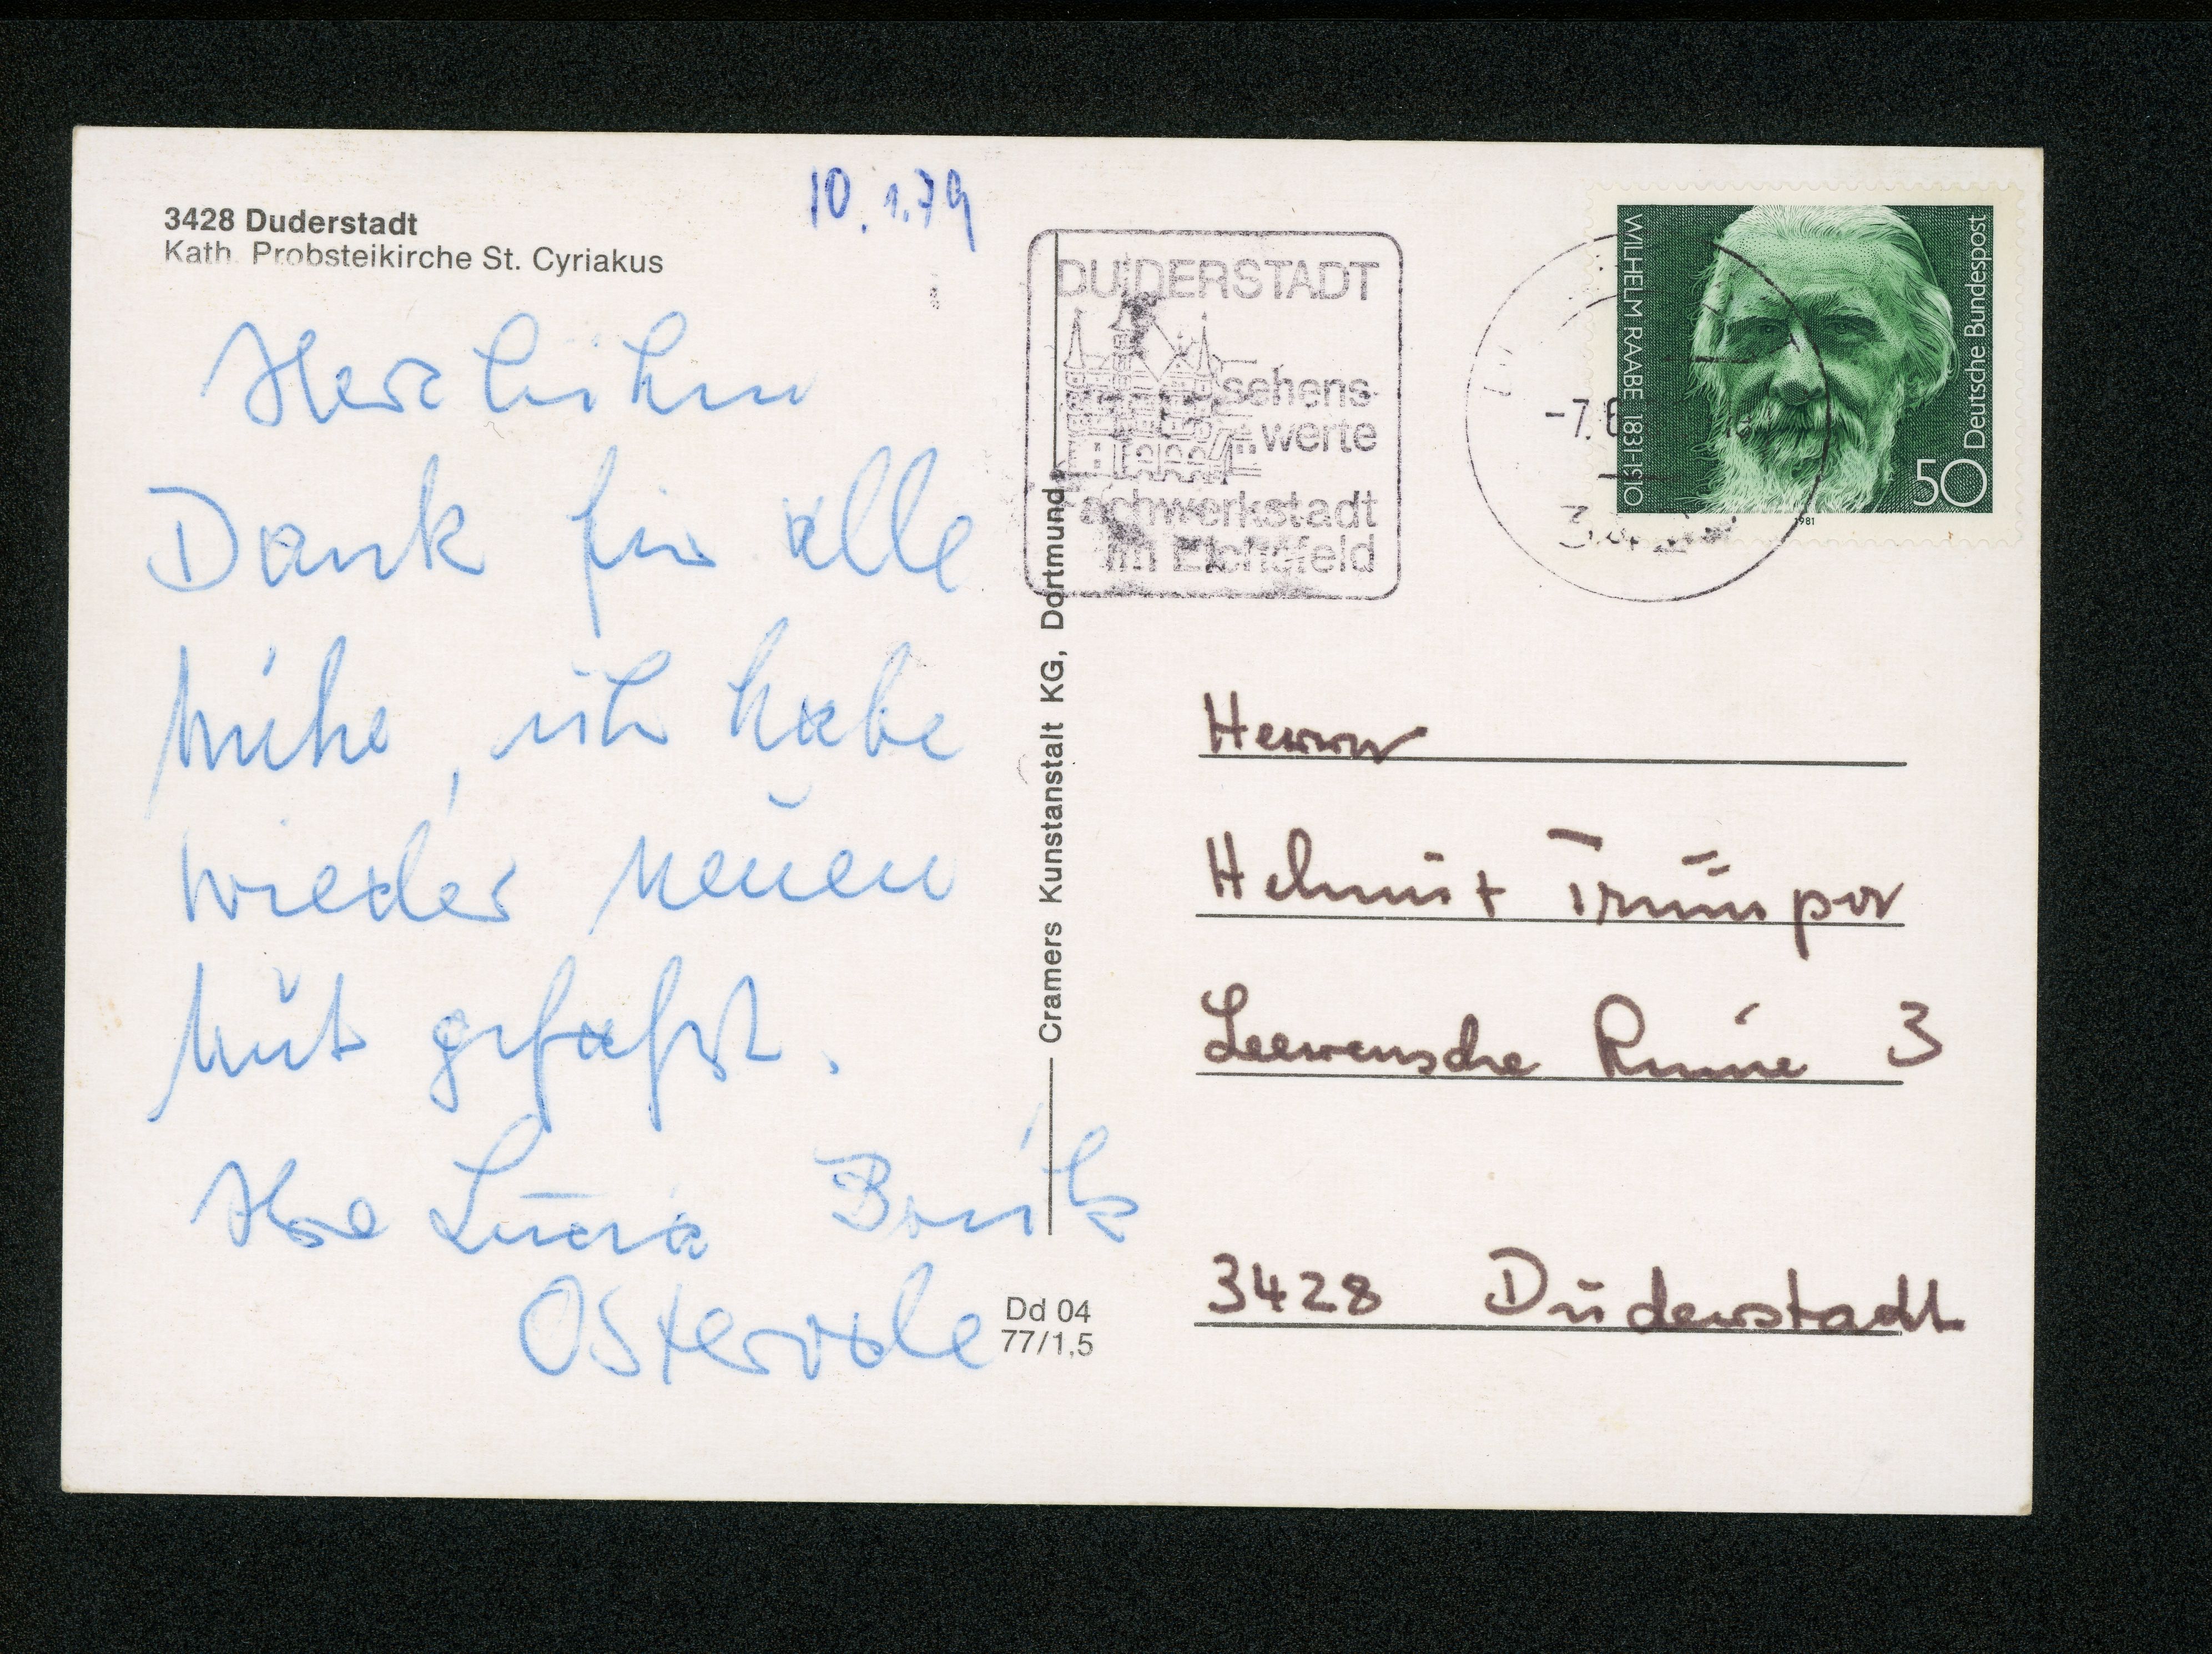 3428 Duderstadt
Kath. Probsteikirche St. Cyriakus
10.1.79
Herzlichen
Dank für alle
Mühe, ich habe
wieder neuen
Mut gefaßt.
Ilse Lucia
Osterode
Cramers Kunstanstalt KG, Dortmund
Dd 04
77/1,5
DUDERSTADT
sehens-
werte
Fachwerkstadt
im Eichsfeld
-7.6
WILHELM RAABE 1831-1910
Deutsche Bundespost
50
1981
Herrn
Helmut Trümper
Leewensche Ruine 3
3428 Duderstadt